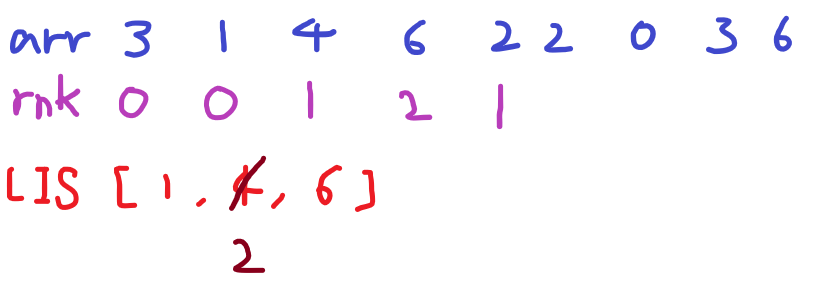 arr 3 1 4 6 2 2 0 3 6
rnk 0 0 1 2 1
LIS [1, 4, 6]
2